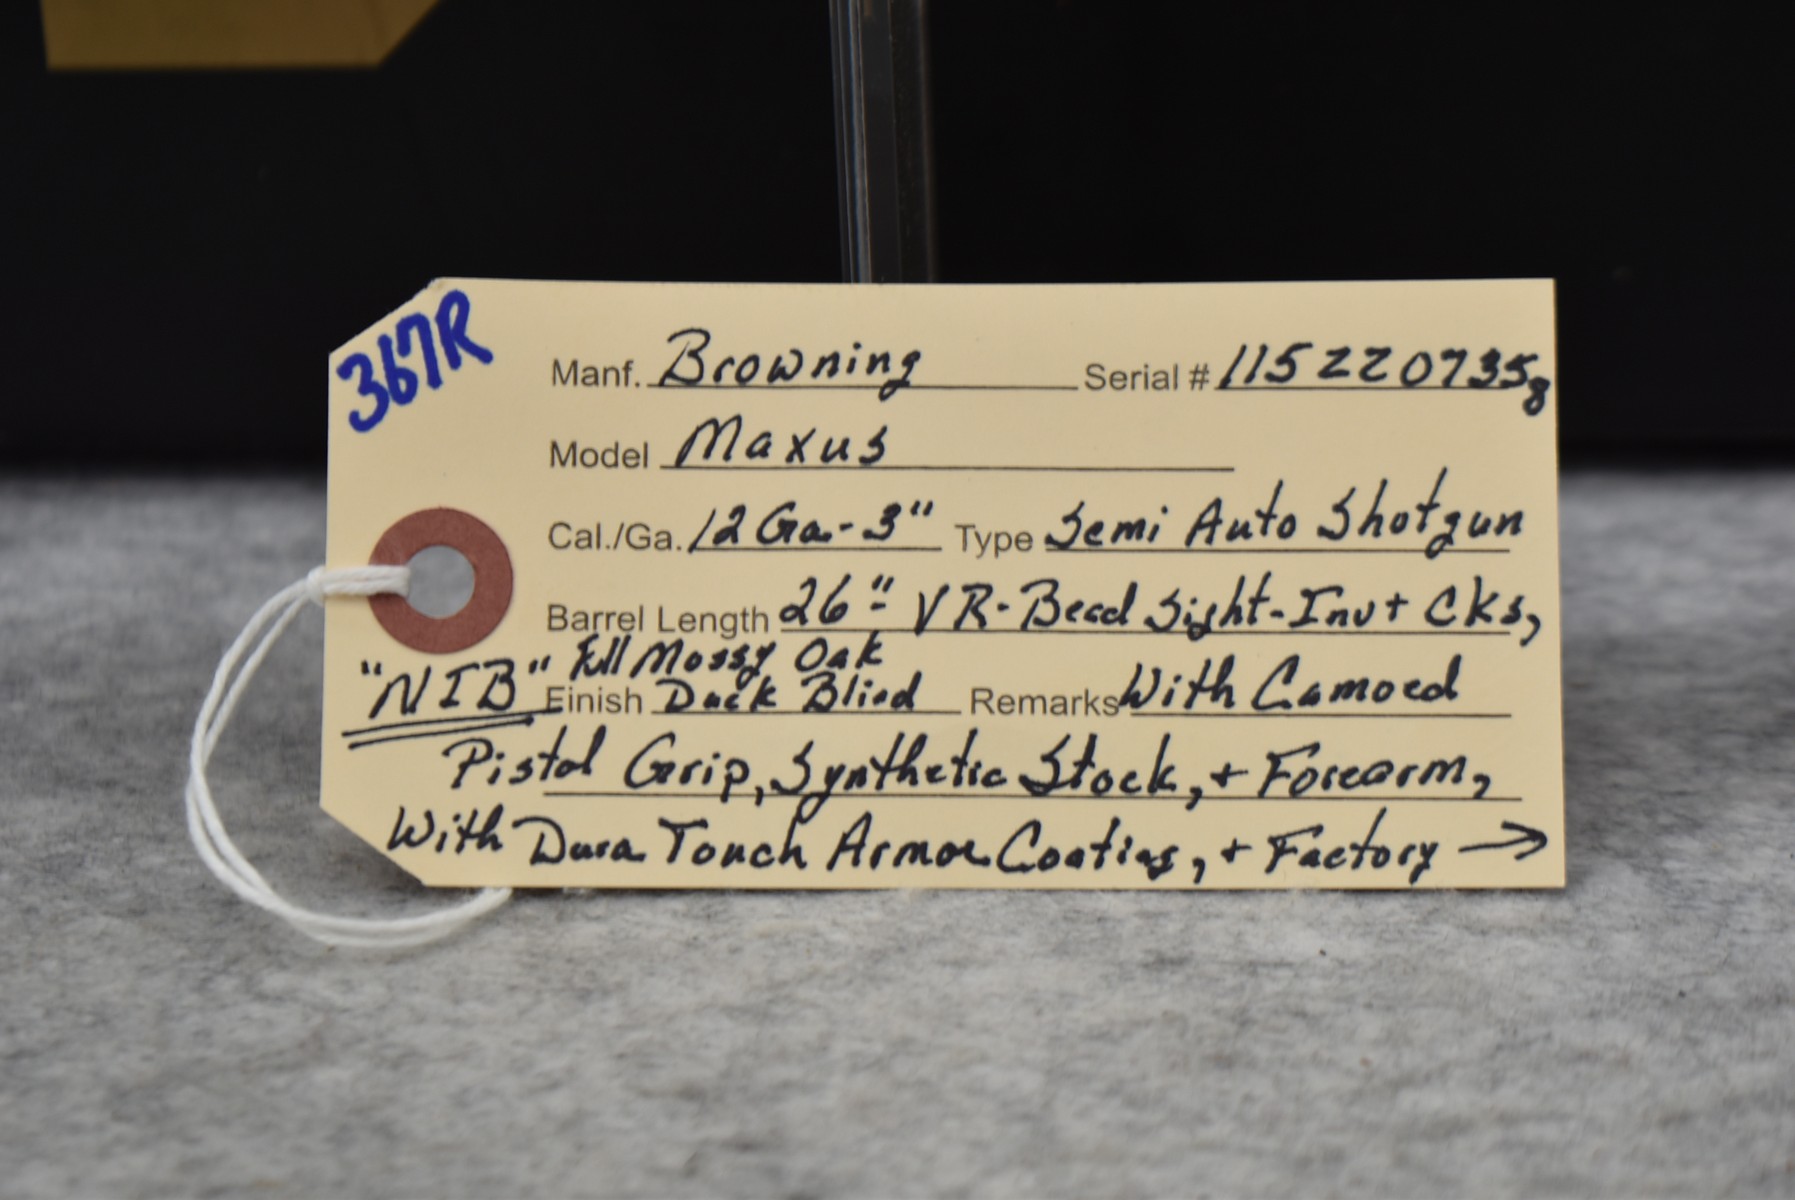 367R
Manf. Browning Serial # 115ZZ07358
Model Maxus
Cal./Ga. 12 Ga.-3" Type Semi Auto Shotgun
Barrel Length 26"- VR-Bead Sight-Inv+ CKs,
"NIB" Full Mossy Oak
Finish Duck Blind Remarks With Camoed
Pistol Grip, Synthetic Stock, + Forearm,
With Dura Touch Armor Coating, + Factory →